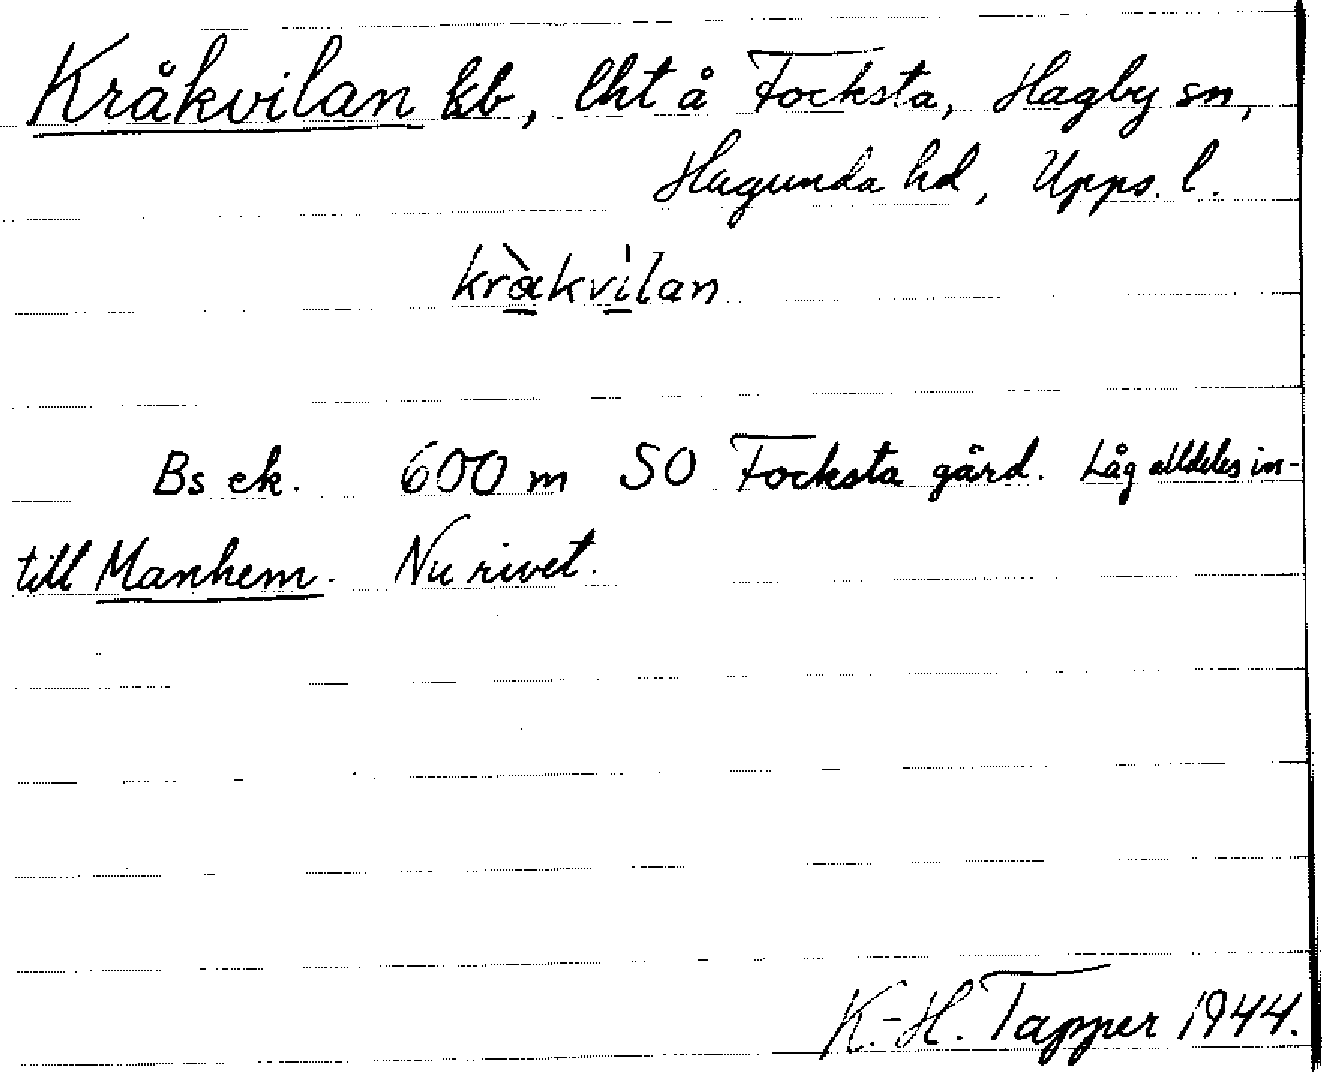 Kråkvilan kb, lht å Focksta, Hagby sn,
Hagunda hd, Upps. l.
kràkvilan
Bs ek. 600 m SO Focksta gård. Låg alldeles in-
till Manhem. Nu rivet.
K.-H. Tapper 1944.